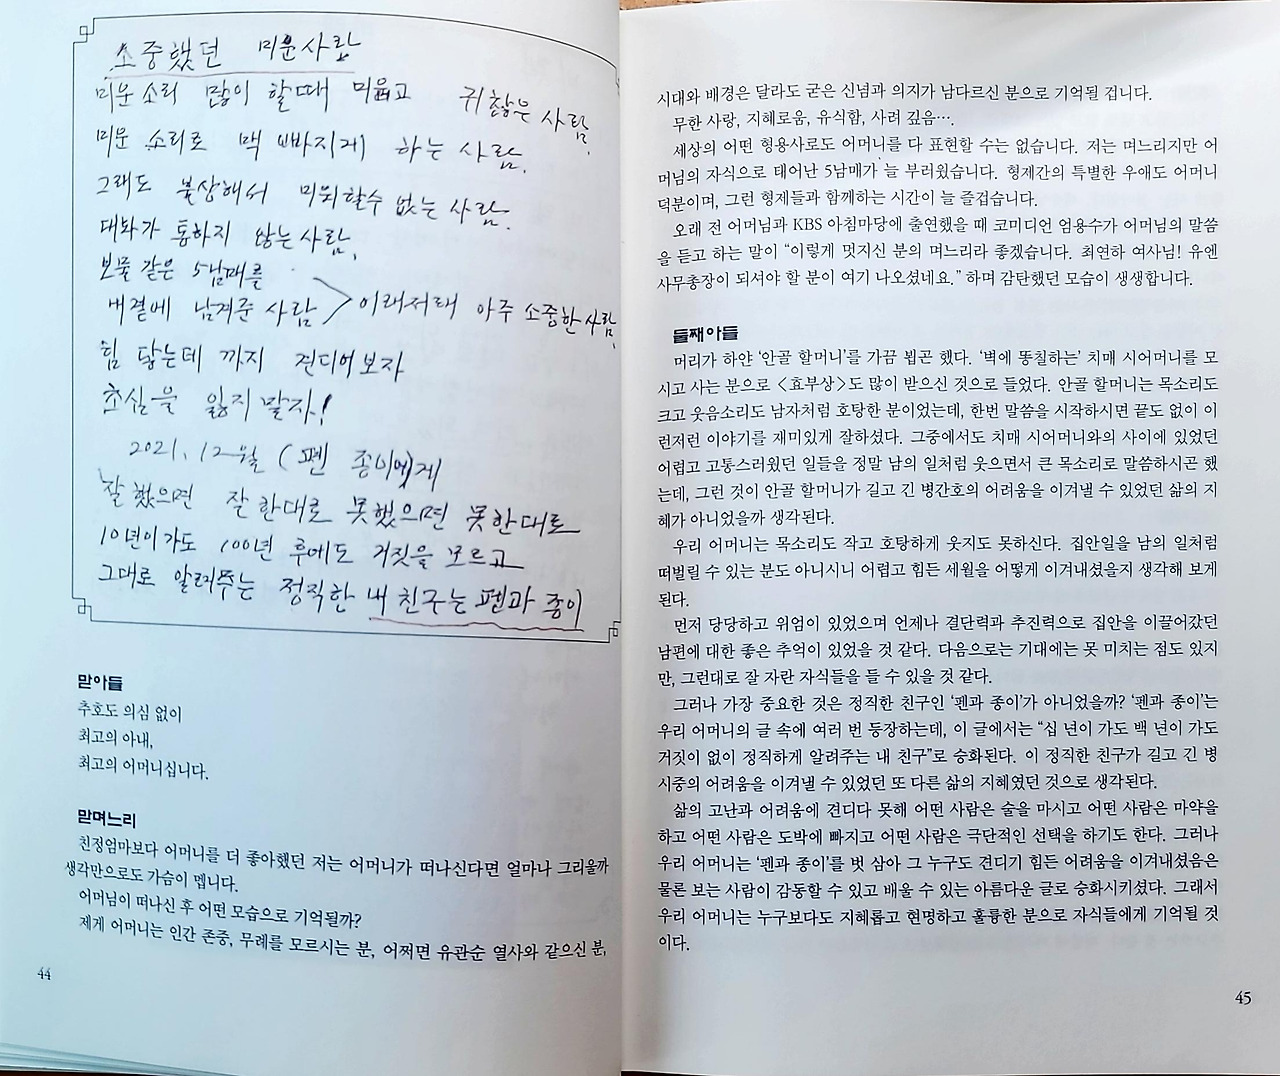 소중했던 미운사람
미운 소리 많이 할때 미웁고 귀찮은 사람.
미운 소리로 맥 빠지게 하는 사람.
그래도 불상해서 미워할수 없는 사람.
대화가 통하지 않는 사람.
보물 같은 5남매를
내곁에 남겨준 사람 > 이래저래 아주 소중한 사람.
힘 닿는데 까지 견디어보자
초심을 잃지 말자!
2021. 12월 (펜 종이에게
잘 했으면 잘 한대로 못했으면 못한대로
10년이 가도 100년 후에도 거짓을 모르고
그대로 알려주는 정직한 내 친구는 펜과 종이
맏아들
추호도 의심 없이
최고의 아내,
최고의 어머니십니다.
맏며느리
친정엄마보다 어머니를 더 좋아했던 저는 어머니가 떠나신다면 얼마나 그리울까
생각만으로도 가슴이 멥니다.
어머님이 떠나신 후 어떤 모습으로 기억될까?
제게 어머니는 인간 존중, 무례를 모르시는 분, 어쩌면 유관순 열사와 같으신 분,
44
시대와 배경은 달라도 굳은 신념과 의지가 남다르신 분으로 기억될 겁니다.
무한 사랑, 지혜로움, 유식함, 사려 깊음….
세상의 어떤 형용사로도 어머니를 다 표현할 수는 없습니다. 저는 며느리지만 어
머님의 자식으로 태어난 5남매가 늘 부러웠습니다. 형제간의 특별한 우애도 어머니
덕분이며, 그런 형제들과 함께하는 시간이 늘 즐겁습니다.
오래 전 어머님과 KBS 아침마당에 출연했을 때 코미디언 엄용수가 어머님의 말씀
을 듣고 하는 말이 “이렇게 멋지신 분의 며느리라 좋겠습니다. 최연하 여사님! 유엔
사무총장이 되셔야 할 분이 여기 나오셨네요.” 하며 감탄했던 모습이 생생합니다.
둘째아들
머리가 하얀 ‘안골 할머니’를 가끔 뵙곤 했다. ‘벽에 똥칠하는’ 치매 시어머니를 모
시고 사는 분으로 <효부상>도 많이 받으신 것으로 들었다. 안골 할머니는 목소리도
크고 웃음소리도 남자처럼 호탕한 분이었는데, 한번 말씀을 시작하시면 끝도 없이 이
런저런 이야기를 재미있게 잘하셨다. 그중에서도 치매 시어머니와의 사이에 있었던
어렵고 고통스러웠던 일들을 정말 남의 일처럼 웃으면서 큰 목소리로 말씀하시곤 했
는데, 그런 것이 안골 할머니가 길고 긴 병간호의 어려움을 이겨낼 수 있었던 삶의 지
혜가 아니었을까 생각된다.
우리 어머니는 목소리도 작고 호탕하게 웃지도 못하신다. 집안일을 남의 일처럼
떠벌릴 수 있는 분도 아니시니 어렵고 힘든 세월을 어떻게 이겨내셨을지 생각해 보게
된다.
먼저 당당하고 위엄이 있었으며 언제나 결단력과 추진력으로 집안을 이끌어갔던
남편에 대한 좋은 추억이 있었을 것 같다. 다음으로는 기대에는 못 미치는 점도 있지
만, 그런대로 잘 자란 자식들을 들 수 있을 것 같다.
그러나 가장 중요한 것은 정직한 친구인 ‘펜과 종이’가 아니었을까? ‘펜과 종이’는
우리 어머니의 글 속에 여러 번 등장하는데, 이 글에서는 “십 년이 가도 백 년이 가도
거짓이 없이 정직하게 알려주는 내 친구”로 승화된다. 이 정직한 친구가 길고 긴 병
시중의 어려움을 이겨낼 수 있었던 또 다른 삶의 지혜였던 것으로 생각된다.
삶의 고난과 어려움에 견디다 못해 어떤 사람은 술을 마시고 어떤 사람은 마약을
하고 어떤 사람은 도박에 빠지고 어떤 사람은 극단적인 선택을 하기도 한다. 그러나
우리 어머니는 ‘펜과 종이’를 벗 삼아 그 누구도 견디기 힘든 어려움을 이겨내셨음은
물론 보는 사람이 감동할 수 있고 배울 수 있는 아름다운 글로 승화시키셨다. 그래서
우리 어머니는 누구보다도 지혜롭고 현명하고 훌륭한 분으로 자식들에게 기억될 것
이다.
45